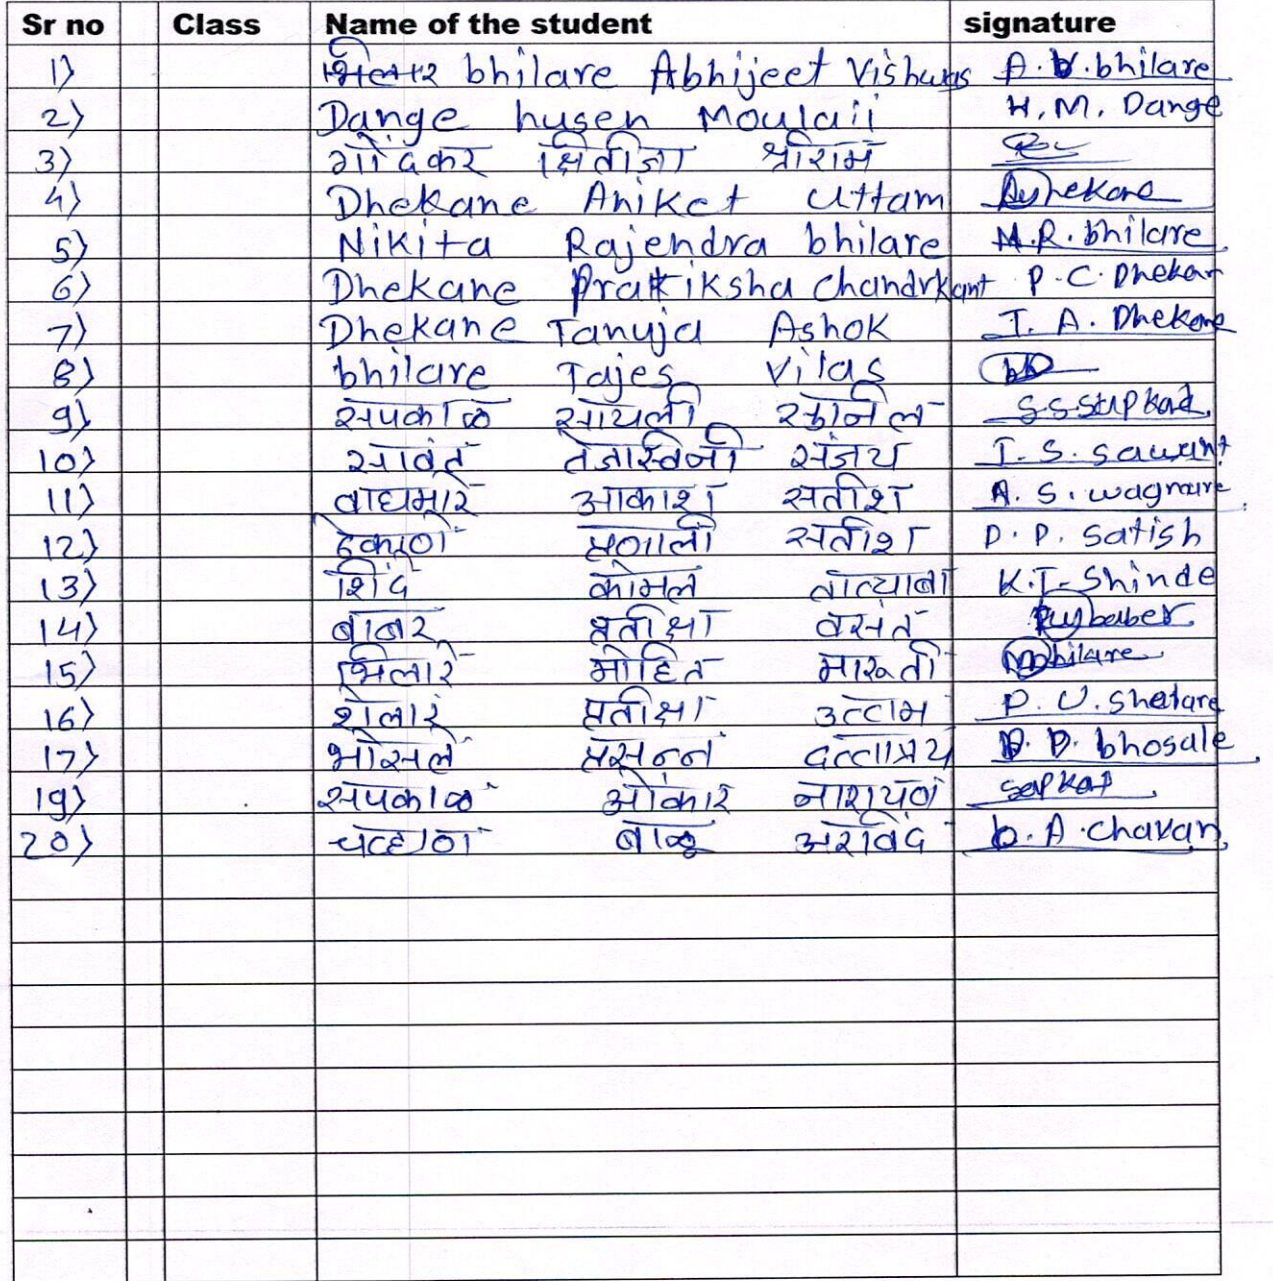 Sr no Class Name of the student signature
1) bhilare Abhijeet Vishwas A.V.bhilare
2) Dange husen Moulaji H.M. Dange
3) गोंदकर क्षितीजा श्रीराम
4) Dhekane Aniket Uttam AuDhekane
5) Nikita Rajendra bhilare N.R.bhilare
6) Dhekane Pratiksha Chandrkant P.C.Dhekan
7) Dhekane Tanuja Ashok T.A.Dhekane
8) bhilare Tajes Vilas
9) सपकाळ सायली सुनिल S.S.Sapkal
10) सावंत तेजस्विनी संजय T.S.Sawant
11) वाघमारे आकाश सतीश A.S.wagmare
12) ढेकाणे प्रणाली सतीश P.P.Satish
13) शिंदे कोमल तात्याबा K.T.Shinde
14) बाबर प्रतीक्षा वसंत baber
15) भिलारे मोहित मारूती Mbhilare
16) शेलार प्रतीक्षा उत्तम P.U.Shelare
17) भोसले प्रसन्न दत्तात्रय P.D.bhosale
19) सपकाळ ओंकार नारायण sapkal
20) चव्हाण बाळू अरविंद b.A.chavan